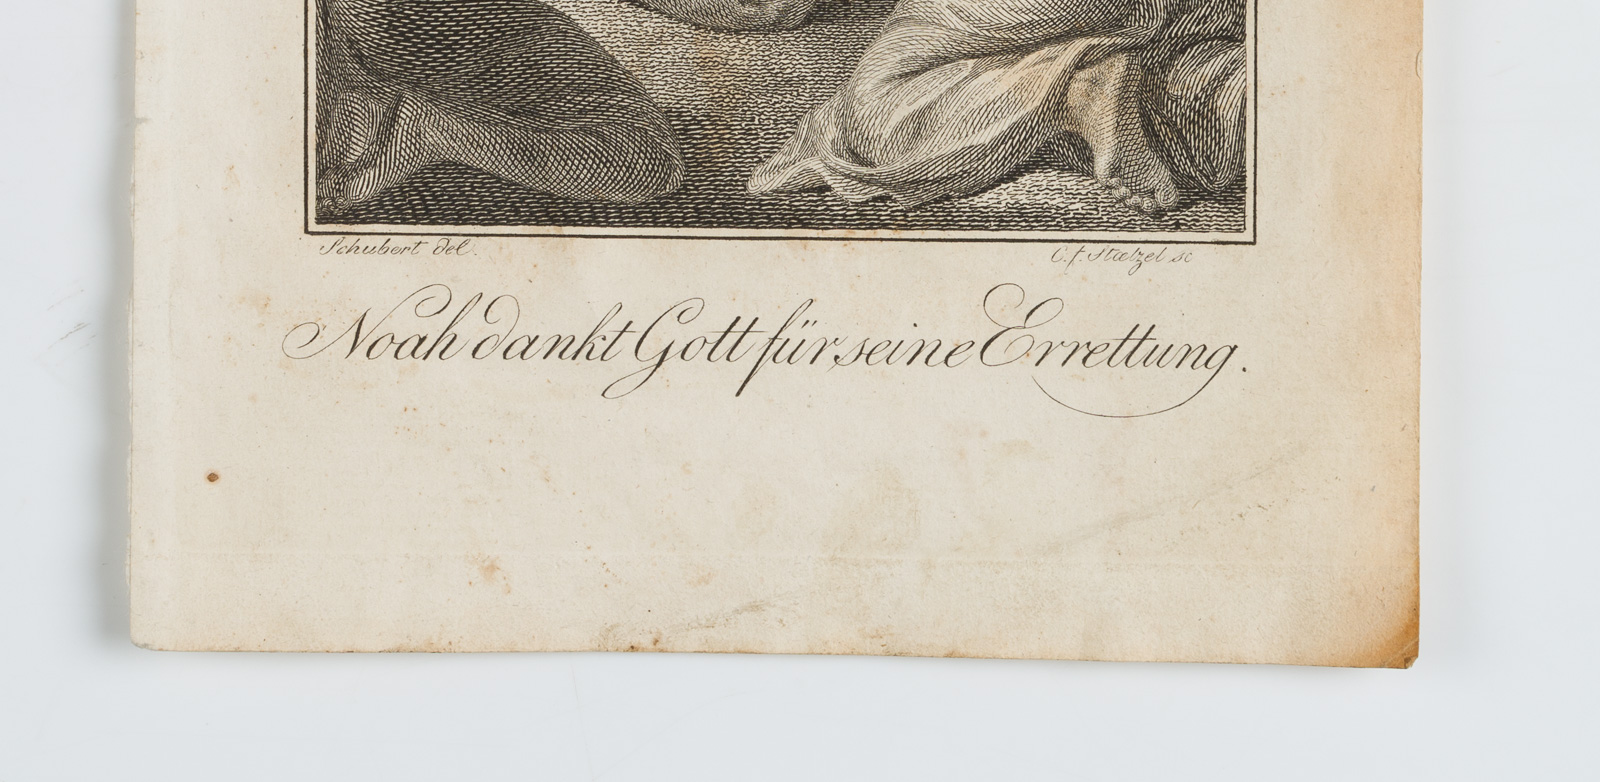 Schubert del.
C. f. Stoelzel sc
Noah dankt Gott für seine Errettung.